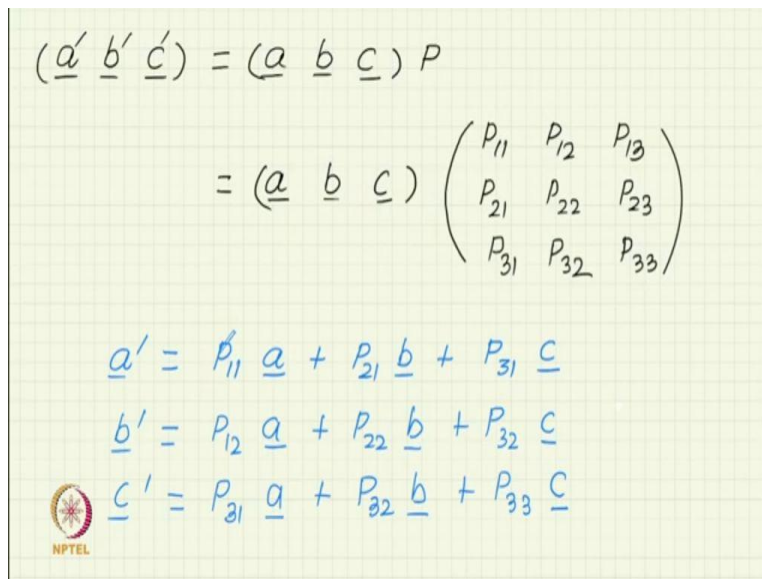 (a′ b′ c′) = (a b c) P
= (a b c) (P₁₁ P₁₂ P₁₃
P₂₁ P₂₂ P₂₃
P₃₁ P₃₂ P₃₃)
a′ = P₁₁ a + P₂₁ b + P₃₁ c
b′ = P₁₂ a + P₂₂ b + P₃₂ c
c′ = P₃₁ a + P₃₂ b + P₃₃ c
NPTEL